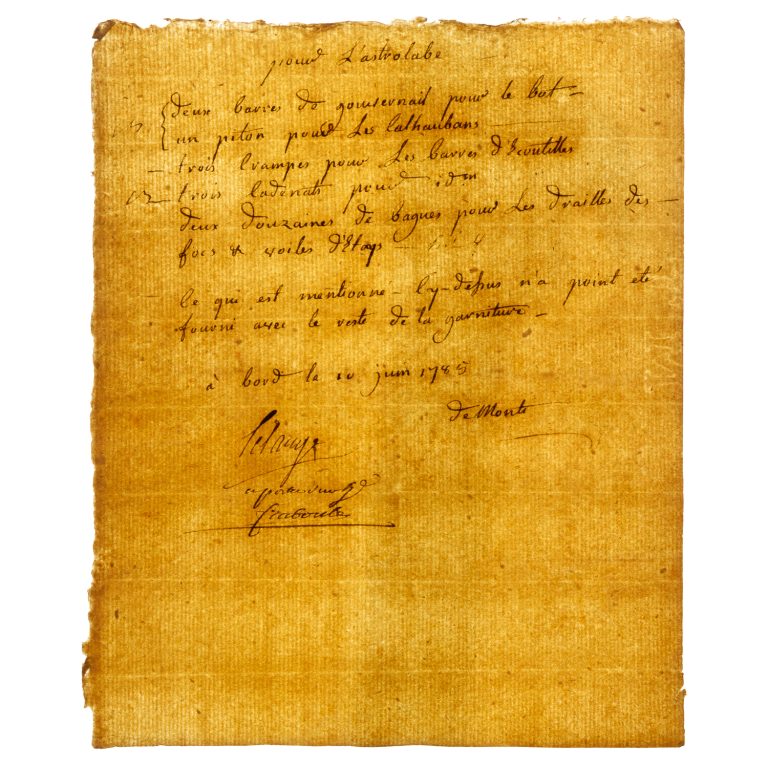 pour L'astrolabe
deux barres de gouvernail pour le bot —
un piton pour Les Calhaubans
— trois Crampes pour Les barres d'Ecoutilles
12 — trois Cadenats pour idm
deux douzaines de bagues pour Les drailles des —
focs & voiles d'Etays —
Ce qui est mentionne — Cy-dessus n'a point eté
fourni avec le reste de la garniture —
à bord le 10 juin 1785
de Monti